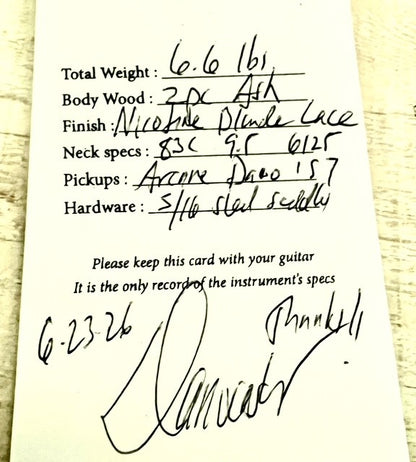 Total Weight : 6.6 lbs
Body Wood : 2pc Ash
Finish : Nicotine Blonde Lace
Neck specs : 83C 9.5 6125
Pickups : Arcane '57
Hardware : 5/16 steel saddles
Please keep this card with your guitar
It is the only record of the instrument's specs
6-23-26 Thanks!!